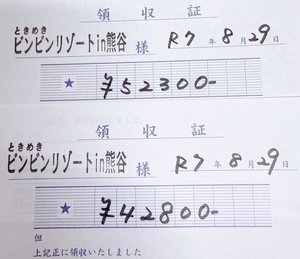 領収証
ときめき
ビンビンリゾートin熊谷 様 R7年8月29日
★ ¥52300-
領収証
ときめき
ビンビンリゾートin熊谷 様 R7年8月29日
★ ¥42800-
但
上記正に領収いたしました